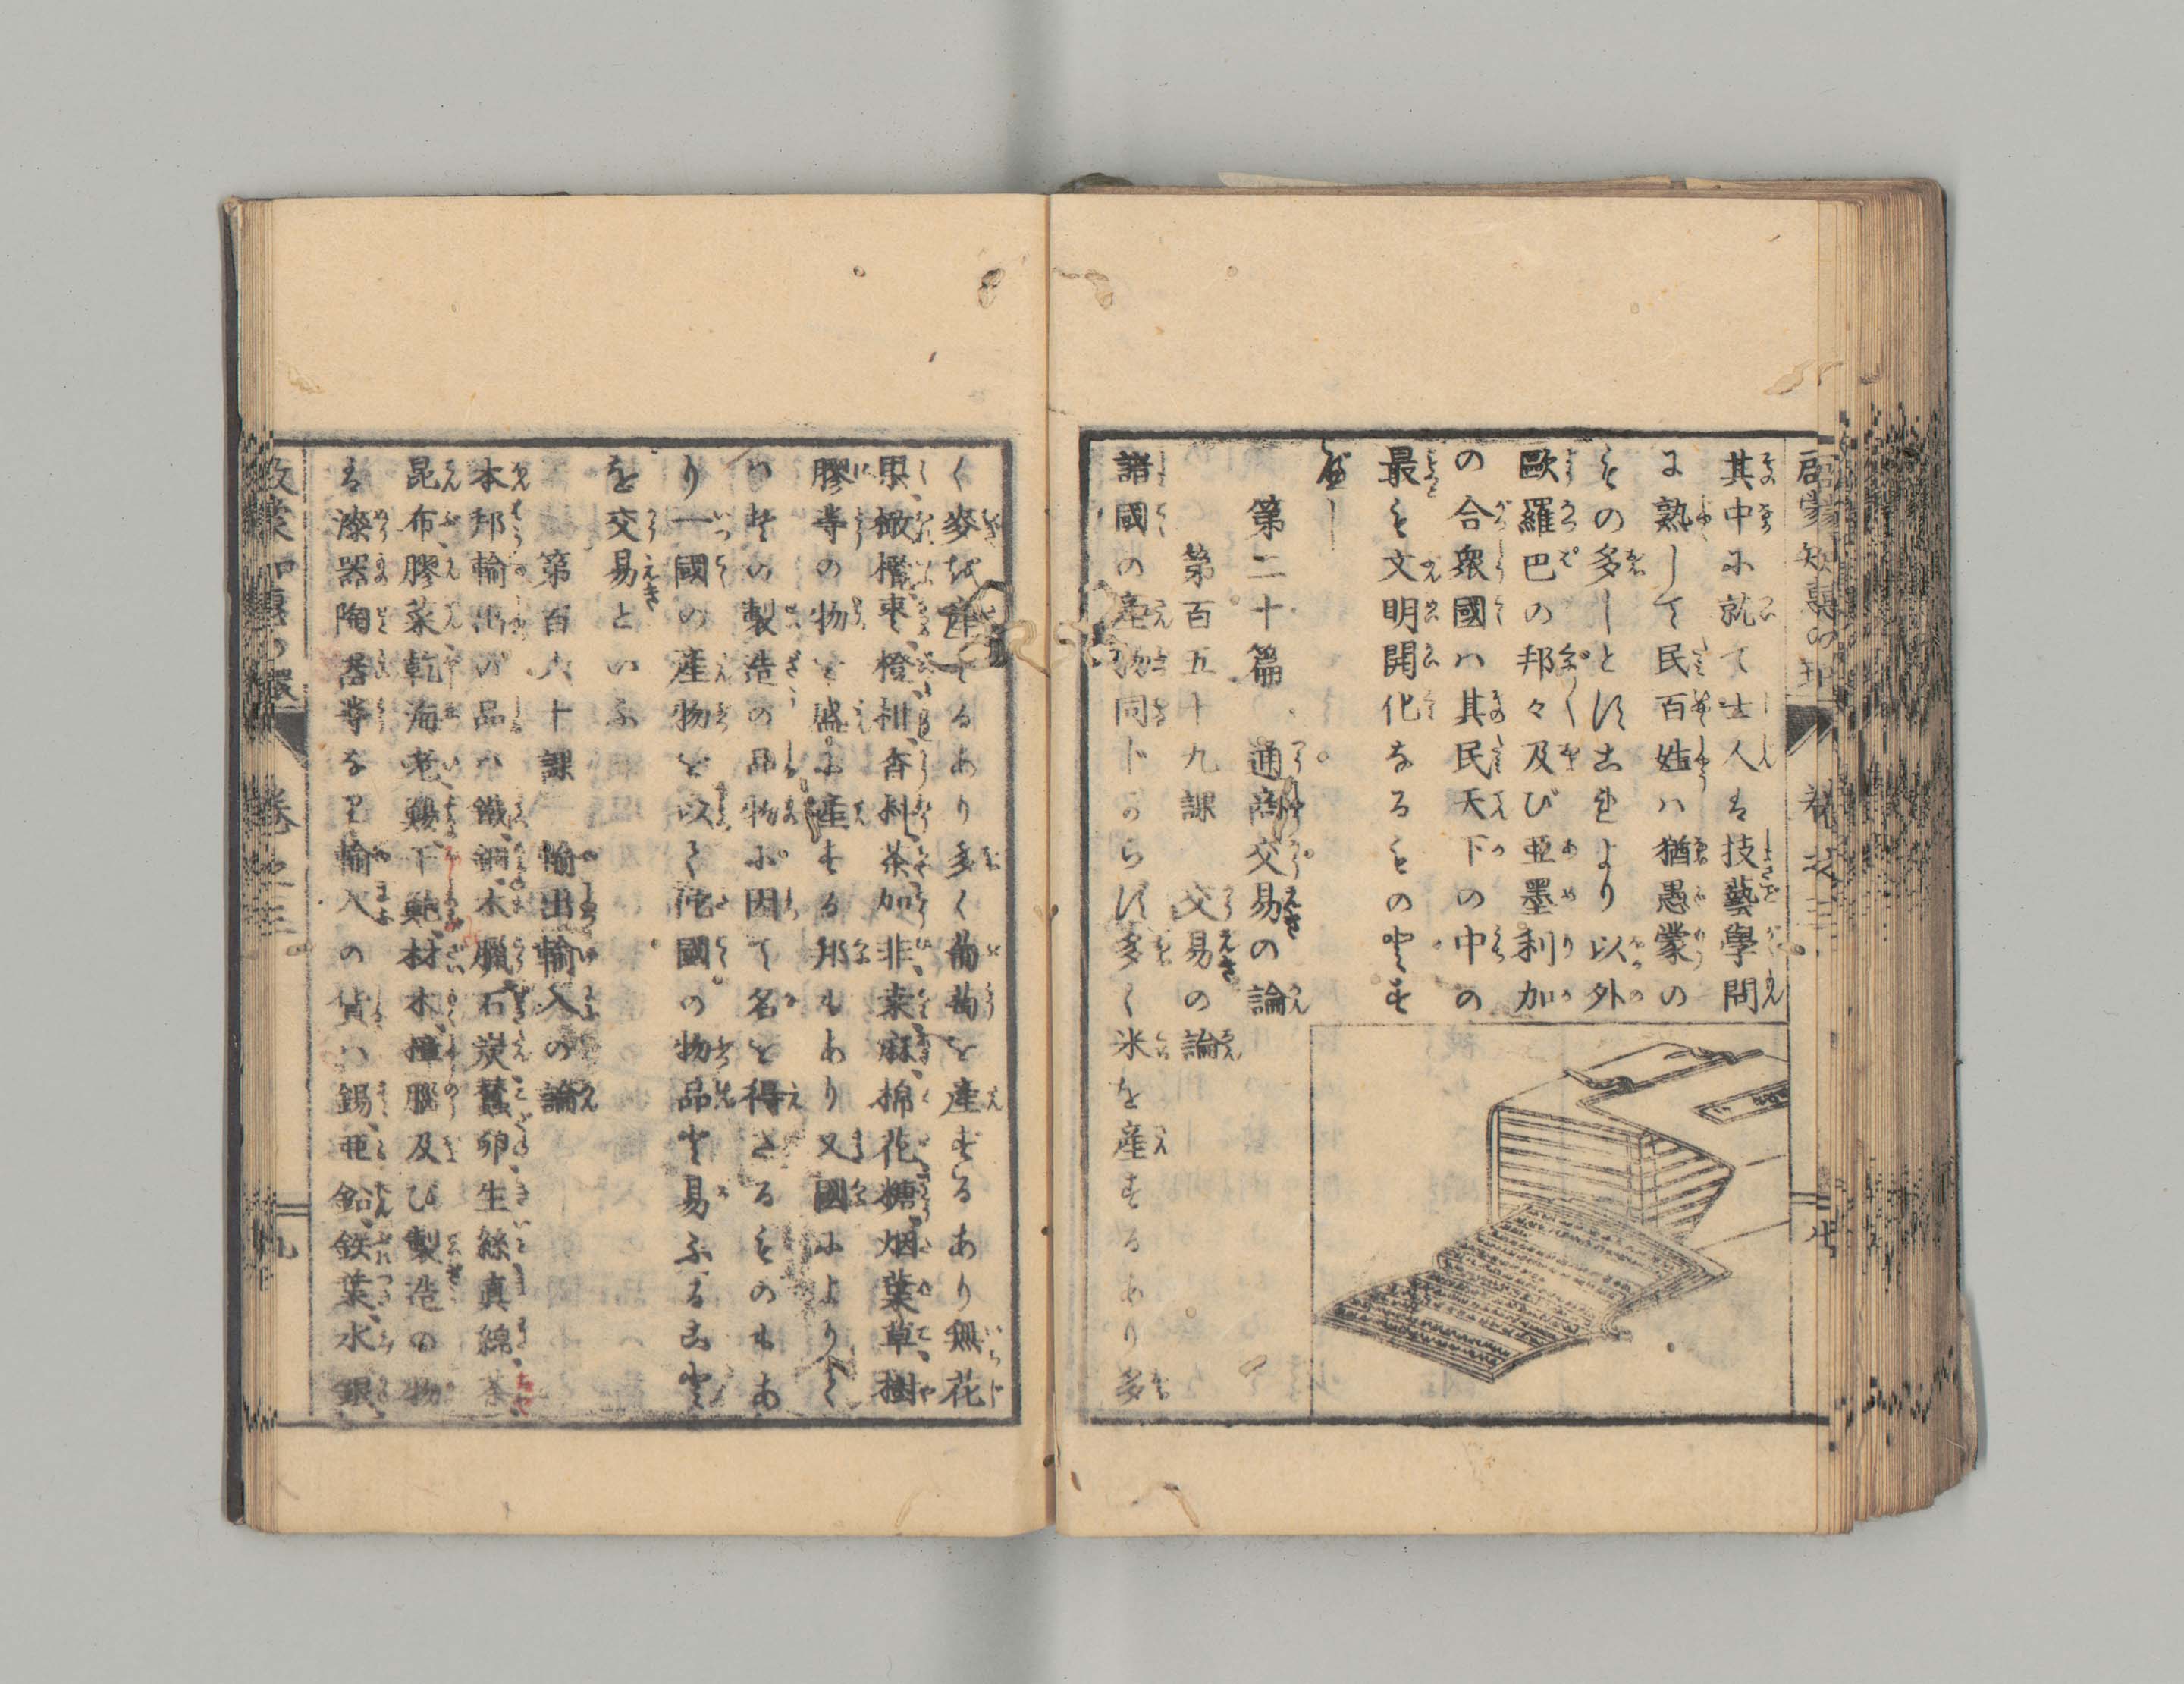 其中に就て士人は技藝學問
に熟して民百姓は猶愚蒙の
もの多しとす是より以外
歐羅巴の邦々及び亞墨利加
の合衆國は其民天下の中の
最も文明開化なるものとす
べし
第二十篇 通商交易の論
第百五十九課 交易の論
諸國の産物同じからず多く米を産するあり多
く麥を産するあり多く葡萄を産するあり無花
果、橄欖、棗、橙、柑、香料、茶、加非、桑、麻、棉花、糖、烟葉草、樹
膠等の物を盛に産する邦もあり又國により
いその製造の品物に因て名を得たるものもあ
り一國の産物を以て佗國の物品と易ふること
を交易といふ
第百六十課 輸出輸入の論
本邦輸出の品は鐵、銅、木臘、石炭、蠶卵、生絲、真綿、茶
昆布、膠菜、乾海老、鯣、干鮑、材木、樟腦及び製造の物
は漆器陶器等なり輸入の貨は錫、亜鉛、鉄葉、水銀、
啓蒙知惠の環 卷之三